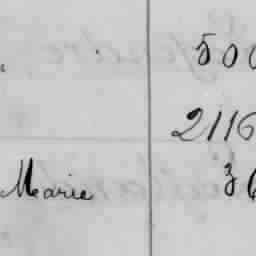 500
2116
Marie 36